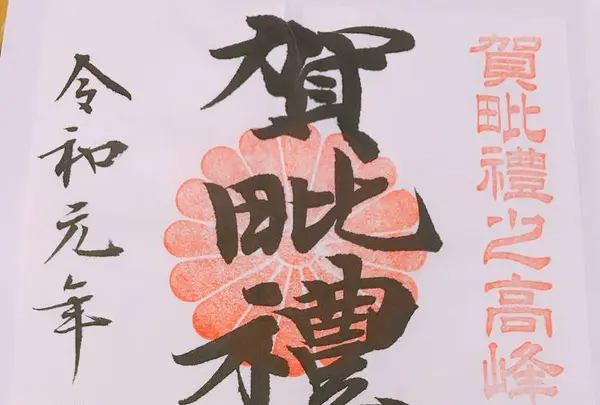 賀毗禮之高峰
賀毗禮
令和元年